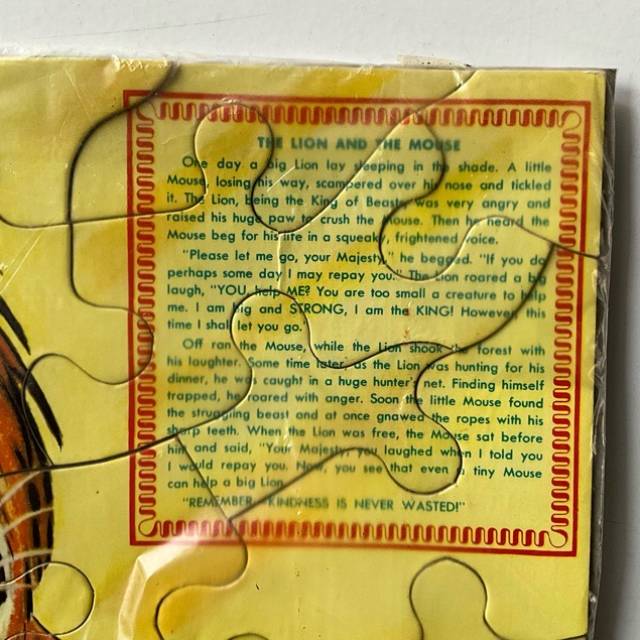 THE LION AND THE MOUSE
One day a big Lion lay sleeping in the shade. A little
Mouse, losing his way, scampered over his nose and tickled
it. The Lion, being the King of Beasts, was very angry and
raised his huge paw to crush the Mouse. Then he heard the
Mouse beg for his life in a squeaky, frightened voice.
"Please let me go, your Majesty," he begged. "If you do
perhaps some day I may repay you." The Lion roared a big
laugh, "YOU help ME? You are too small a creature to help
me. I am big and STRONG, I am the KING! However, this
time I shall let you go."
Off ran the Mouse, while the Lion shook the forest with
his laughter. Some time later, as the Lion was hunting for his
dinner, he was caught in a huge hunter's net. Finding himself
trapped, he roared with anger. Soon the little Mouse found
the struggling beast and at once gnawed the ropes with his
sharp teeth. When the Lion was free, the Mouse sat before
him and said, "Your Majesty, you laughed when I told you
I would repay you. Now, you see that even a tiny Mouse
can help a big Lion.
"REMEMBER, KINDNESS IS NEVER WASTED!"